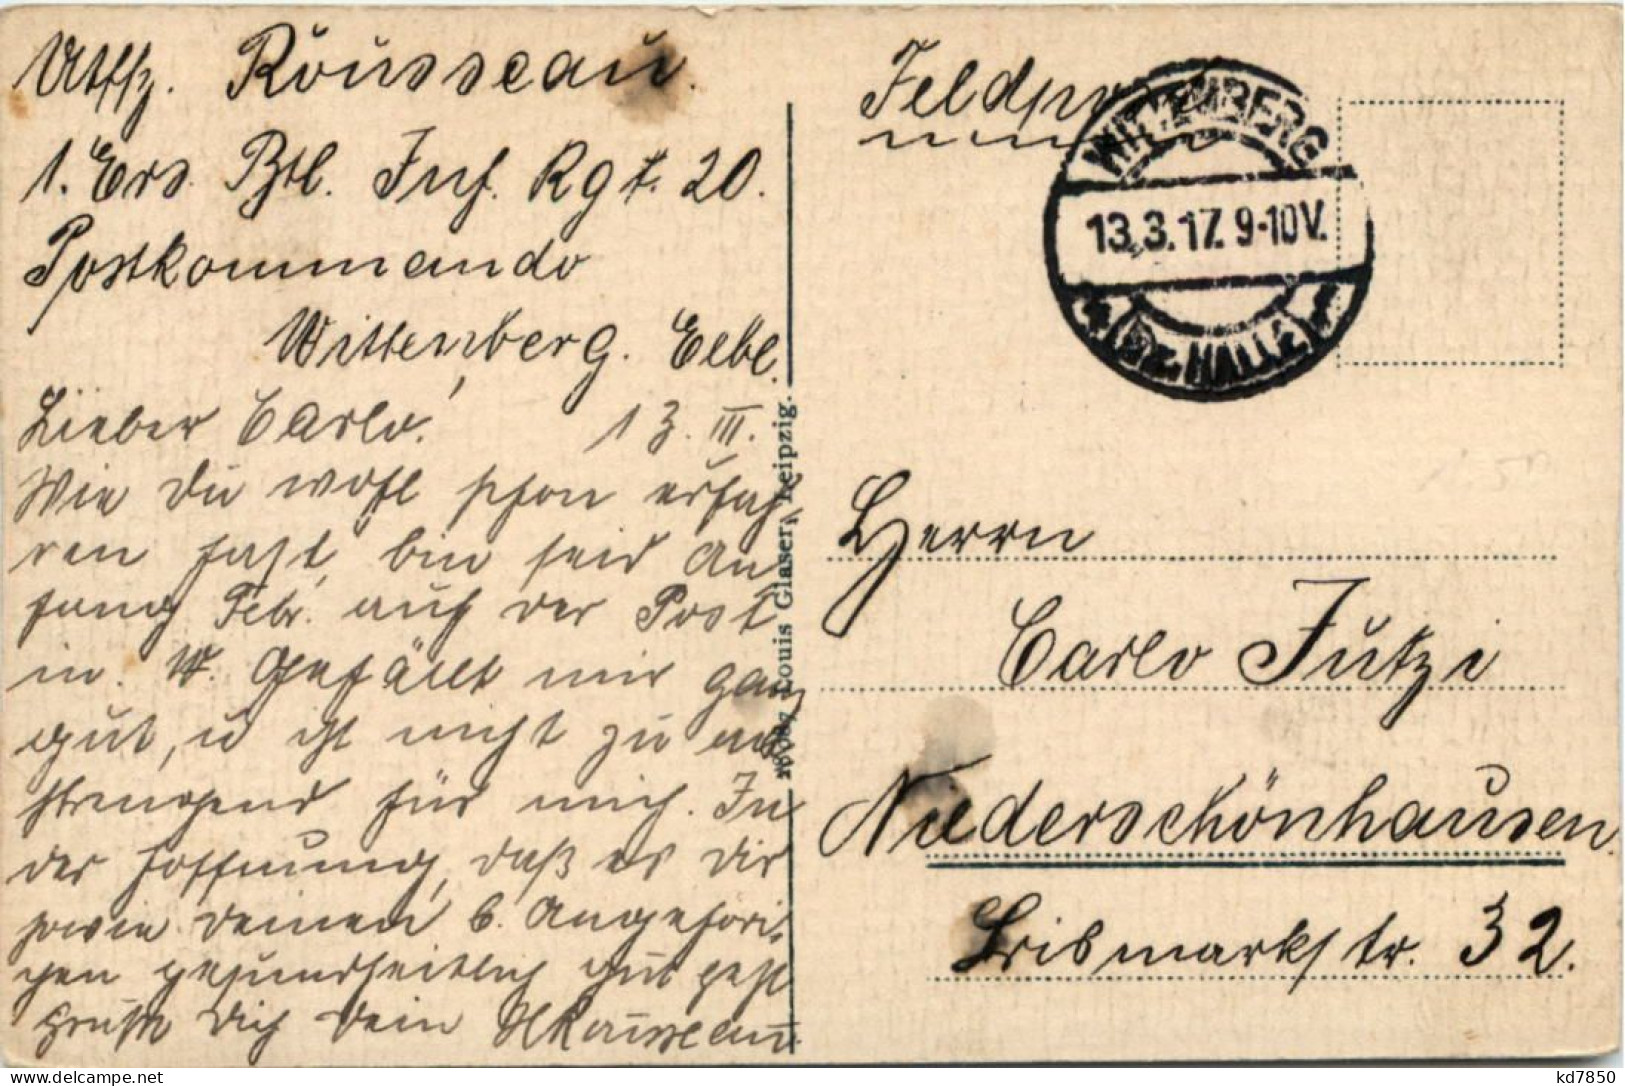 Utffz. Rousseau.
1. Ers. Btl. Inf. Rgt. 20.
Postkommando
Wittenberg. Elbe.
Lieber Carlo! 13. III.
Wie Du wohl schon erfah-
ren hast, bin seid An-
fang Febr. auf der Post
in W. Gefällt mir ganz
gut, u ist nicht zu an
strengend für mich. In
der Hoffnung, daß es Dir
sowie deinen b. Angehöri-
gen gesundheitlich gut geht
Grüßt Dich Dein Rousseau.
Louis Glaser, Leipzig.
Feldpost
WITTENBERG
13.3.17. 9-10V.
* (Bz. HALLE) *
Herrn
Carlo Jutzi
Niederschönhausen.
Bismarkstr. 32.
kd7850